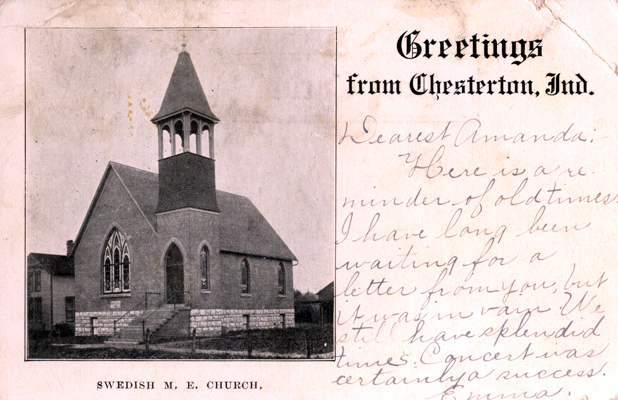 Greetings
from Chesterton, Ind.
Dearest Amanda:-
Here is a re-
minder of old times.
I have long been
waiting for a
letter from you, but
it was in vain. We
still have splendid
times. Concert was
certainly a success.
Emma.
SWEDISH M. E. CHURCH.